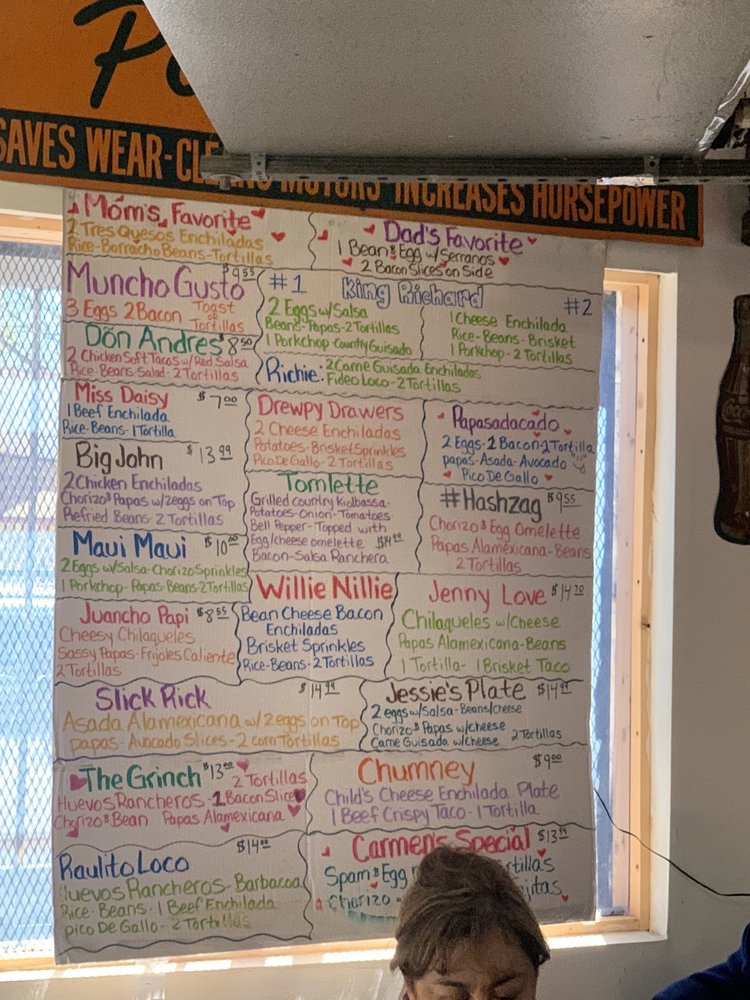 SAVES WEAR-CL MOTORS INCREASES HORSEPOWER
Mom's Favorite
2 Tres Quesos Enchiladas
Rice-Borracho Beans-Tortillas
Dad's Favorite
1 Bean & Egg w/Serranos
2 Bacon Slices on Side
Muncho Gusto $9.55
3 Eggs 2 Bacon Toast or Tortillas
King Richard
#1
2 Eggs w/Salsa
Beans-Papas-2 Tortillas
1 Porkchop Country Guisado
#2
1 Cheese Enchilada
Rice-Beans-Brisket
1 Porkchop-2 Tortillas
Richie: 2 Carne Guisada Enchiladas
Fideo Loco-2 Tortillas
Don Andres $8.50
2 Chicken Soft Tacos w/Red Salsa
Rice-Beans-Salad-2 Tortillas
Miss Daisy $7.00
1 Beef Enchilada
Rice-Beans-1 Tortilla
Drewpy Drawers
2 Cheese Enchiladas
Potatoes-Brisket Sprinkles
Pico De Gallo-2 Tortillas
Papasadacado
2 Eggs-2 Bacon-1 Tortilla
papas-Asada-Avocado
Pico De Gallo
Big John $13.99
2 Chicken Enchiladas
Chorizo & Papas w/2eggs on Top
Refried Beans-2 Tortillas
Tomlette
Grilled country Kiolbassa-
Potatoes-Onion-Tomatoes
Bell Pepper-Topped with
Egg/cheese omelette
Bacon-Salsa Ranchera
#Hashzag $9.55
Chorizo & Egg Omelette
Papas Alamexicana-Beans
2 Tortillas
Maui Maui $10.00
2 Eggs w/Salsa-Chorizo Sprinkles
1 Porkchop-Papas-Beans-2 Tortillas
Willie Nillie
Bean Cheese Bacon
Enchiladas
Brisket Sprinkles
Rice-Beans-2 Tortillas
Jenny Love $14.70
Chilaqueles w/Cheese
Papas Alamexicana-Beans
1 Tortilla-1 Brisket Taco
Juancho Papi $8.55
Cheesy Chilaqueles
Sassy Papas-Frijoles Caliente
2 Tortillas
Slick Rick $14.99
Asada Alamexicana w/2 eggs on Top
papas-Avocado Slices-2 corn Tortillas
Jessie's Plate $14.99
2 eggs w/Salsa-Beans/cheese
Chorizo & Papas w/cheese
Carne Guisada w/cheese 2 Tortillas
The Grinch $13.00
2 Tortillas
Huevos Rancheros-1 Bacon Slice
Chorizo & Bean Papas Alamexicana
Chumney $9.00
Child's Cheese Enchilada Plate
1 Beef Crispy Taco-1 Tortilla
Raulito Loco $14.00
Huevos Rancheros-Barbacoa
Rice-Beans-1 Beef Enchilada
pico De Gallo-2 Tortillas
Carmen's Special $13.99
Spam & Egg
Chorizo